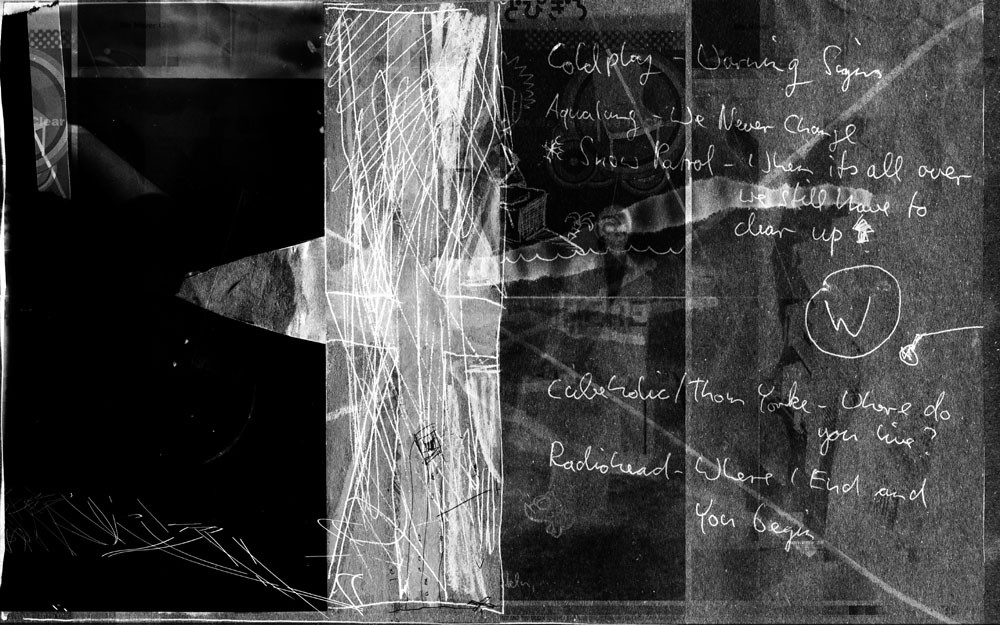 clear
とびきり
Coldplay - Warning Signs
Aqualung - We Never Change
Snow Patrol - When its all over
we still have to
clear up
W
Cubeholic/Thom Yorke - Where do
you live?
Radiohead - Where I End and
You begin